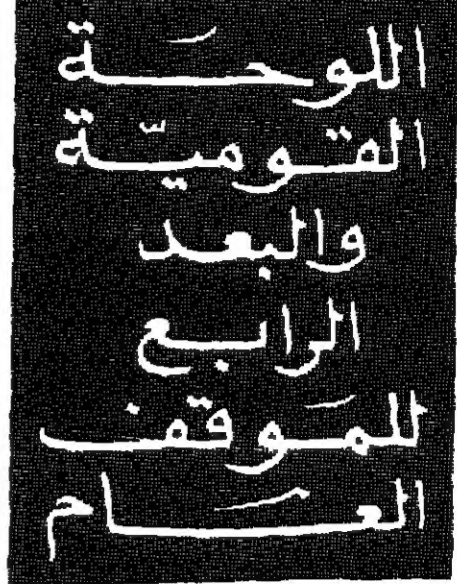 اللوحَة
القوميّة
والبعد
الرابع
للمَوقف
العَام